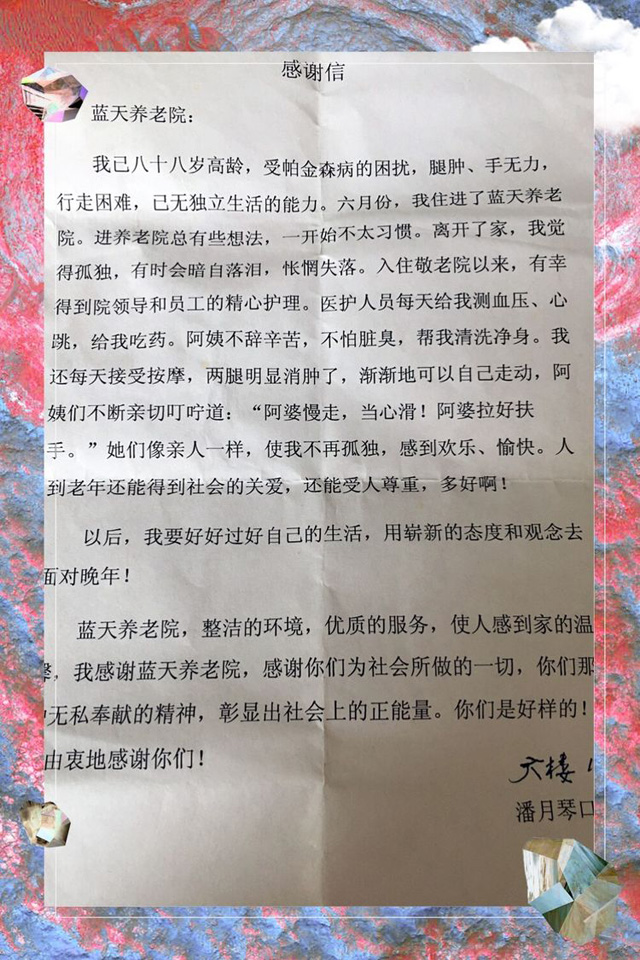 感谢信
蓝天养老院：
我已八十八岁高龄，受帕金森病的困扰，腿肿、手无力，
行走困难，已无独立生活的能力。六月份，我住进了蓝天养老
院。进养老院总有些想法，一开始不太习惯。离开了家，我觉
得孤独，有时会暗自落泪，怅惘失落。入住敬老院以来，有幸
得到院领导和员工的精心护理。医护人员每天给我测血压、心
跳，给我吃药。阿姨不辞辛苦，不怕脏臭，帮我清洗净身。我
还每天接受按摩，两腿明显消肿了，渐渐地可以自己走动，阿
姨们不断亲切叮咛道：“阿婆慢走，当心滑！阿婆拉好扶
手。”她们像亲人一样，使我不再孤独，感到欢乐、愉快。人
到老年还能得到社会的关爱，还能受人尊重，多好啊！
以后，我要好好过好自己的生活，用崭新的态度和观念去
面对晚年！
蓝天养老院，整洁的环境，优质的服务，使人感到家的温
，我感谢蓝天养老院，感谢你们为社会所做的一切，你们那
无私奉献的精神，彰显出社会上的正能量。你们是好样的！
由衷地感谢你们！
六楼
潘月琴口